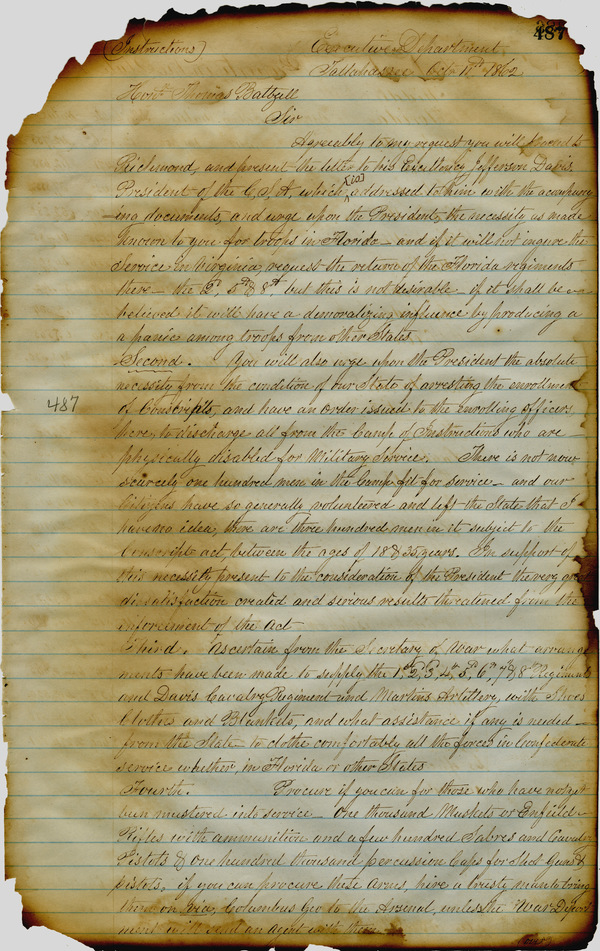 487
(Instructions) Executive Department
Tallahassee Octo 11th 1862
Honl Thomas Baltzell
Sir
Agreeably to my request you will proceed to
Richmond, and present the letter to his Excellency Jefferson Davis,
President of the C, S, A, which [is] addressed to him with the accompany
-ing documents, and urge upon the President, the necessity as made
known to you for troops in Florida - and if it will not injure the
Service in Virginia, request the return of the Florida regiments
there - the 5th & 8th, but this is not desirable if it shall be
believed it will have a demoralizing influence by producing a
a panic among troops from other States
Second. You will also urge upon the President the absolute
necessity from the condition of our State of arresting the enrollment
487
of Conscripts, and have an order issued to the enrolling officers
here, to discharge all from the Camp of Instructions who are
physically disabled for Military Service. There is not now
scarcely one hundred men in the Camp fit for service - and our
Citizens have so generally volunteered and left the State that I
have no idea, there are three hundred men in it subject to the
Conscripts act, between the ages of 18 & 35 years. In support of
this necessity present to the consideration of the President the very great
dissatisfaction created and serious results threatened from the
inforcement of the Act
Third. Ascertain from the Secretary of War what arrange
ments have been made to supply the 1st, 2d, 3d, 4th, 5th, 6th, 7th & 8th Regiments
and Davis Cavalry Regiment and Martins Artillery, with Shoes
Clothes and Blankets, and what assistance if any is needed -
from the State to clothe comfortably all the forces in Confederate
service whether, in Florida or other States
Fourth. Procure if you can for those who have not yet
been mustered into service - One thousand Muskets or Enfield
Rifles with ammunition and a few hundred Sabres and Cavalry
Pistols & one hundred thousand percussion Caps for Shot Guns &
pistols, if you can procure these Arms, hire a trusty man to bring
them on via, Columbus Geo to the Arsenal, unless the War Depart
ment will send an Agent with them